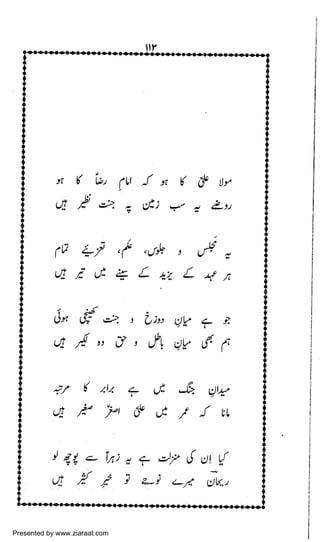 ۱۱۳
مولا علیؑ کا ہو کہ امام رضاؑ کا ہو
روضے یہ سب زمین پہ جنت نظیر ہیں
یہ مجلس و جلوس، علَم، تعزیئے تمام
ہر عہد کے یزید کے سینے میں تیر ہیں
جو ہے میانِ دوزخ و جنت کھینچی ہوئی
ہم بھی میانِ باطل و حق وہ لکیر ہیں
میدانِ جنگ میں ہے برابر کا مرتبہ
مانا کہ عمر میں علی اصغرؑ صغیر ہیں
کیا اِن کی منزلت ہے یہ زہراؑ سے پوچھ لو
ریحانؔ میرے نوحے تو خیرِ کثیر ہیں
Presented by www.ziaraat.com